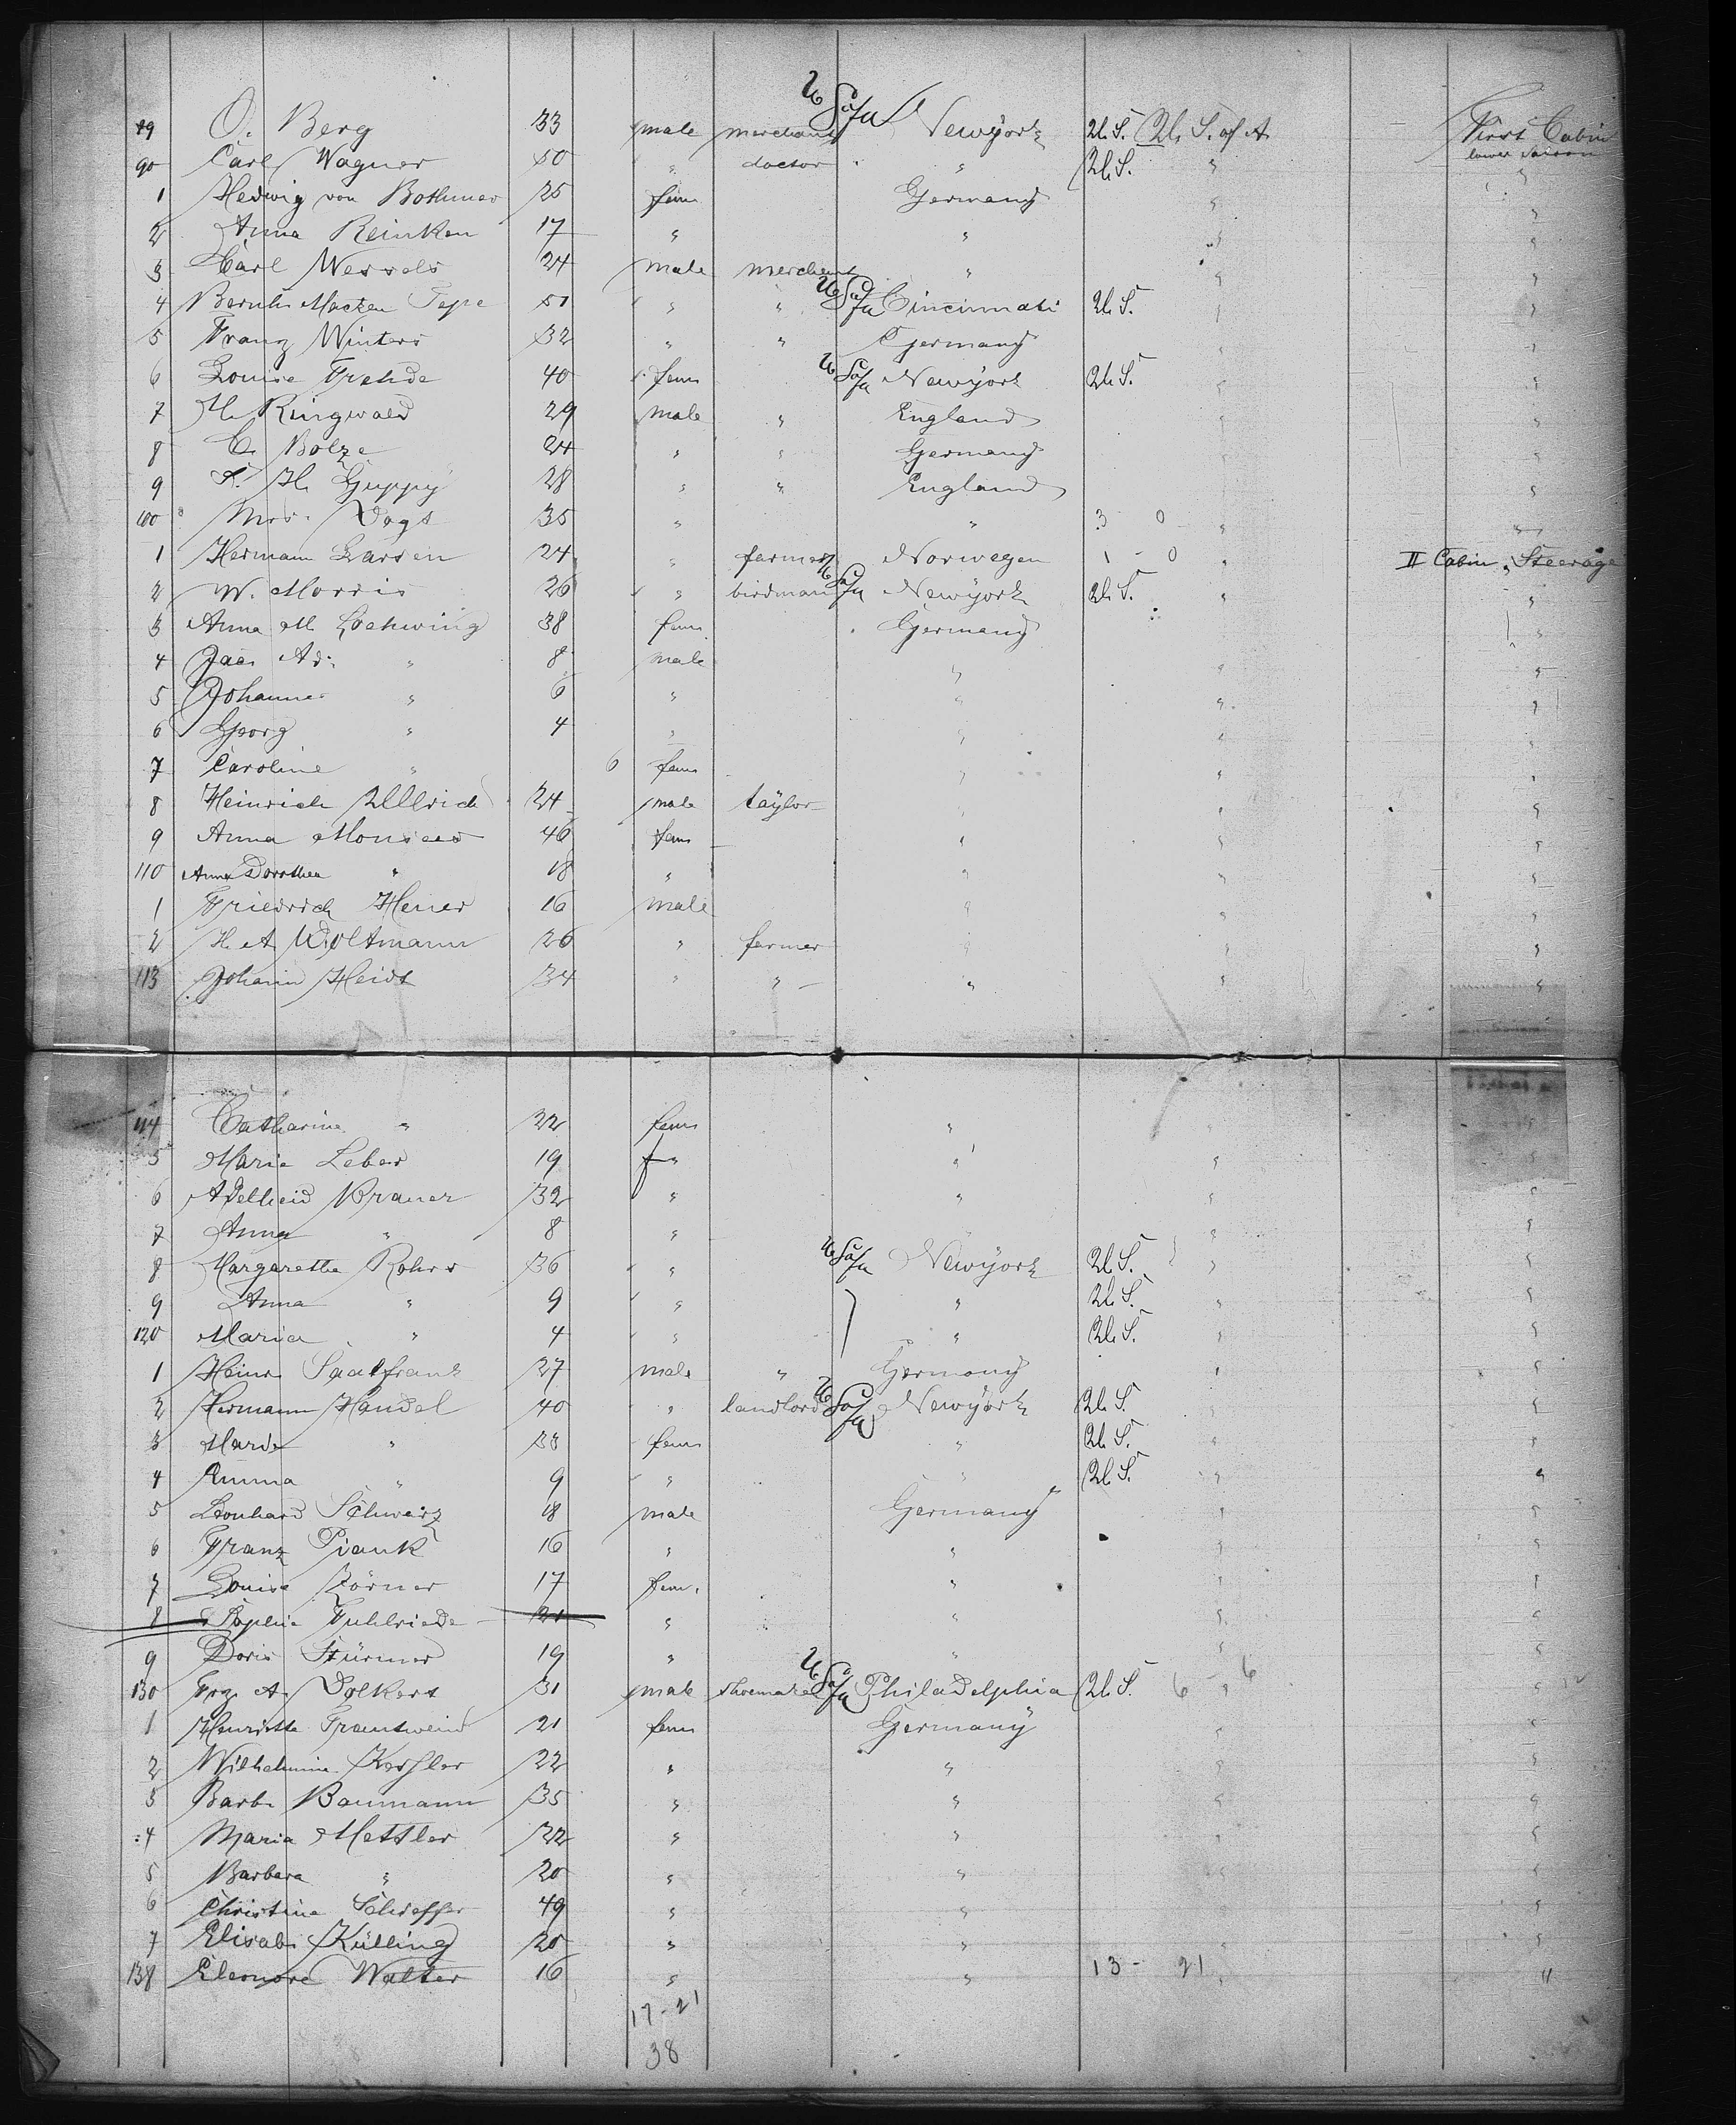 89 O. Berg 33 male merchant USofA Newÿork U.S. U.S. of A. First Cabin
lower saloon
90 Carl Wagner 50 " doctor " U.S. " "
1 Hedwig von Bothmer 25 fem Germany " "
2 Anna Reinken 17 " " " "
3 Carl Wessels 24 male merchant " " "
4 Bernh. Tepe 51 " " USofA Cincinnati U.S. " "
5 Franz Winters 32 " " Germany " "
6 Louise Frehde 40 fem USofA Newÿork U.S. " "
7 H. Ringwald 29 male " England " "
8 C. Bolze 24 " " Germany " "
9 F. H. Guppy 28 " " England " "
100 Mrs. Vogt 35 " " 3 - 0 " "
1 Hermann Larsen 24 " farmer Norwegen 1 - 0 " II Cabin, Steerage
2 W. Morris 26 " birdman USofA Newÿork U.S. " "
3 Anna M. Lochwing 38 fem Germany "
4 Jac. Ad. " 8 male " " "
5 Johannes " 6 " " " "
6 Georg " 4 " " " "
7 Caroline " 6 fem " " "
8 Heinrich Ullrich 24 male taÿlor " " "
9 Anna Monsees 46 fem " " "
110 Anna Dorothea " 18 " " " "
1 Friedrich Heuer 16 male " " "
2 H. A. Woltmann 26 " farmer " " "
113 Johann Heidt 34 " " " "
114 Catharine " 32 fem " " "
5 Marie Leber 19 f " " " "
6 Adelheid Kramer 32 " " " "
7 Anna " 8 " " "
8 Margarethe Rohrs 36 " USofA Newÿork U.S. " "
9 Anna " 9 " " U.S. " "
120 Maria " 4 " " U.S. " "
1 Heinr. Saalfrank 27 male " Germany " "
2 Hermann Handel 40 " landlord USofA Newÿork U.S. " "
3 Marie " 33 fem " U.S. " "
4 Emma " 9 " " U.S. " "
5 Leonhard Schwarz 18 male Germany " "
6 Franz Piank 16 " " " "
7 Louise Körner 17 fem. " " "
8 Sophie Fuhlriede 21 " " " "
9 Doris Stürmer 19 " " " "
130 Frz. A. Volkert 31 male shoemaker USofA Philadelphia U.S. 6 - 6 " "
1 Henriette Trautwein 21 fem Germanÿ " "
2 Wilhelmine Kessler 22 " " " "
3 Barb. Baumann 35 " " " "
4 Maria Mettler 22 " " " "
5 Barbara " 20 " " " "
6 Christine 49 " " " "
7 Elisab. Külling 20 " " " "
138 Eleonore Walter 16 " " 13 - 21 " "
17 - 21
38